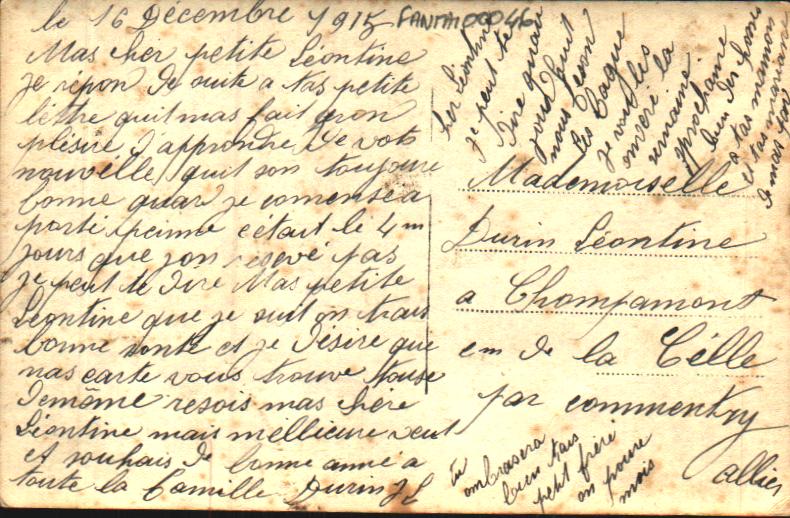 le 16 Décembre 1915
FANTAI000046
Mas cher petite Léontine
je répon de suite a tas petite
lettre quit mas fait gron
plésire d'apprendre de vots
nouvélle quit son toujoure
bonne quar je comense a
c'était le 4m
jours que jon pas
je peut te dire Mas petite
Léontine que je suit on trais
bonne sonté et je désire que
mas carte vous trouve touse
demôme resois mas chere
Léontine mais mellieure veut
et souhais de bonne anné a
toute la famille Durin JL
cher Léontine
je peut te
dire quan
nous
les Bague
je vait les
la
semaine
prochaine
bien des choses
a tas maman
et tas
Mademoiselle
Durin Léontine
a Chompamont
em de la Célle
par commentry
allier
Tu
ombrasera
bien tais
petit frére
on poure
mois